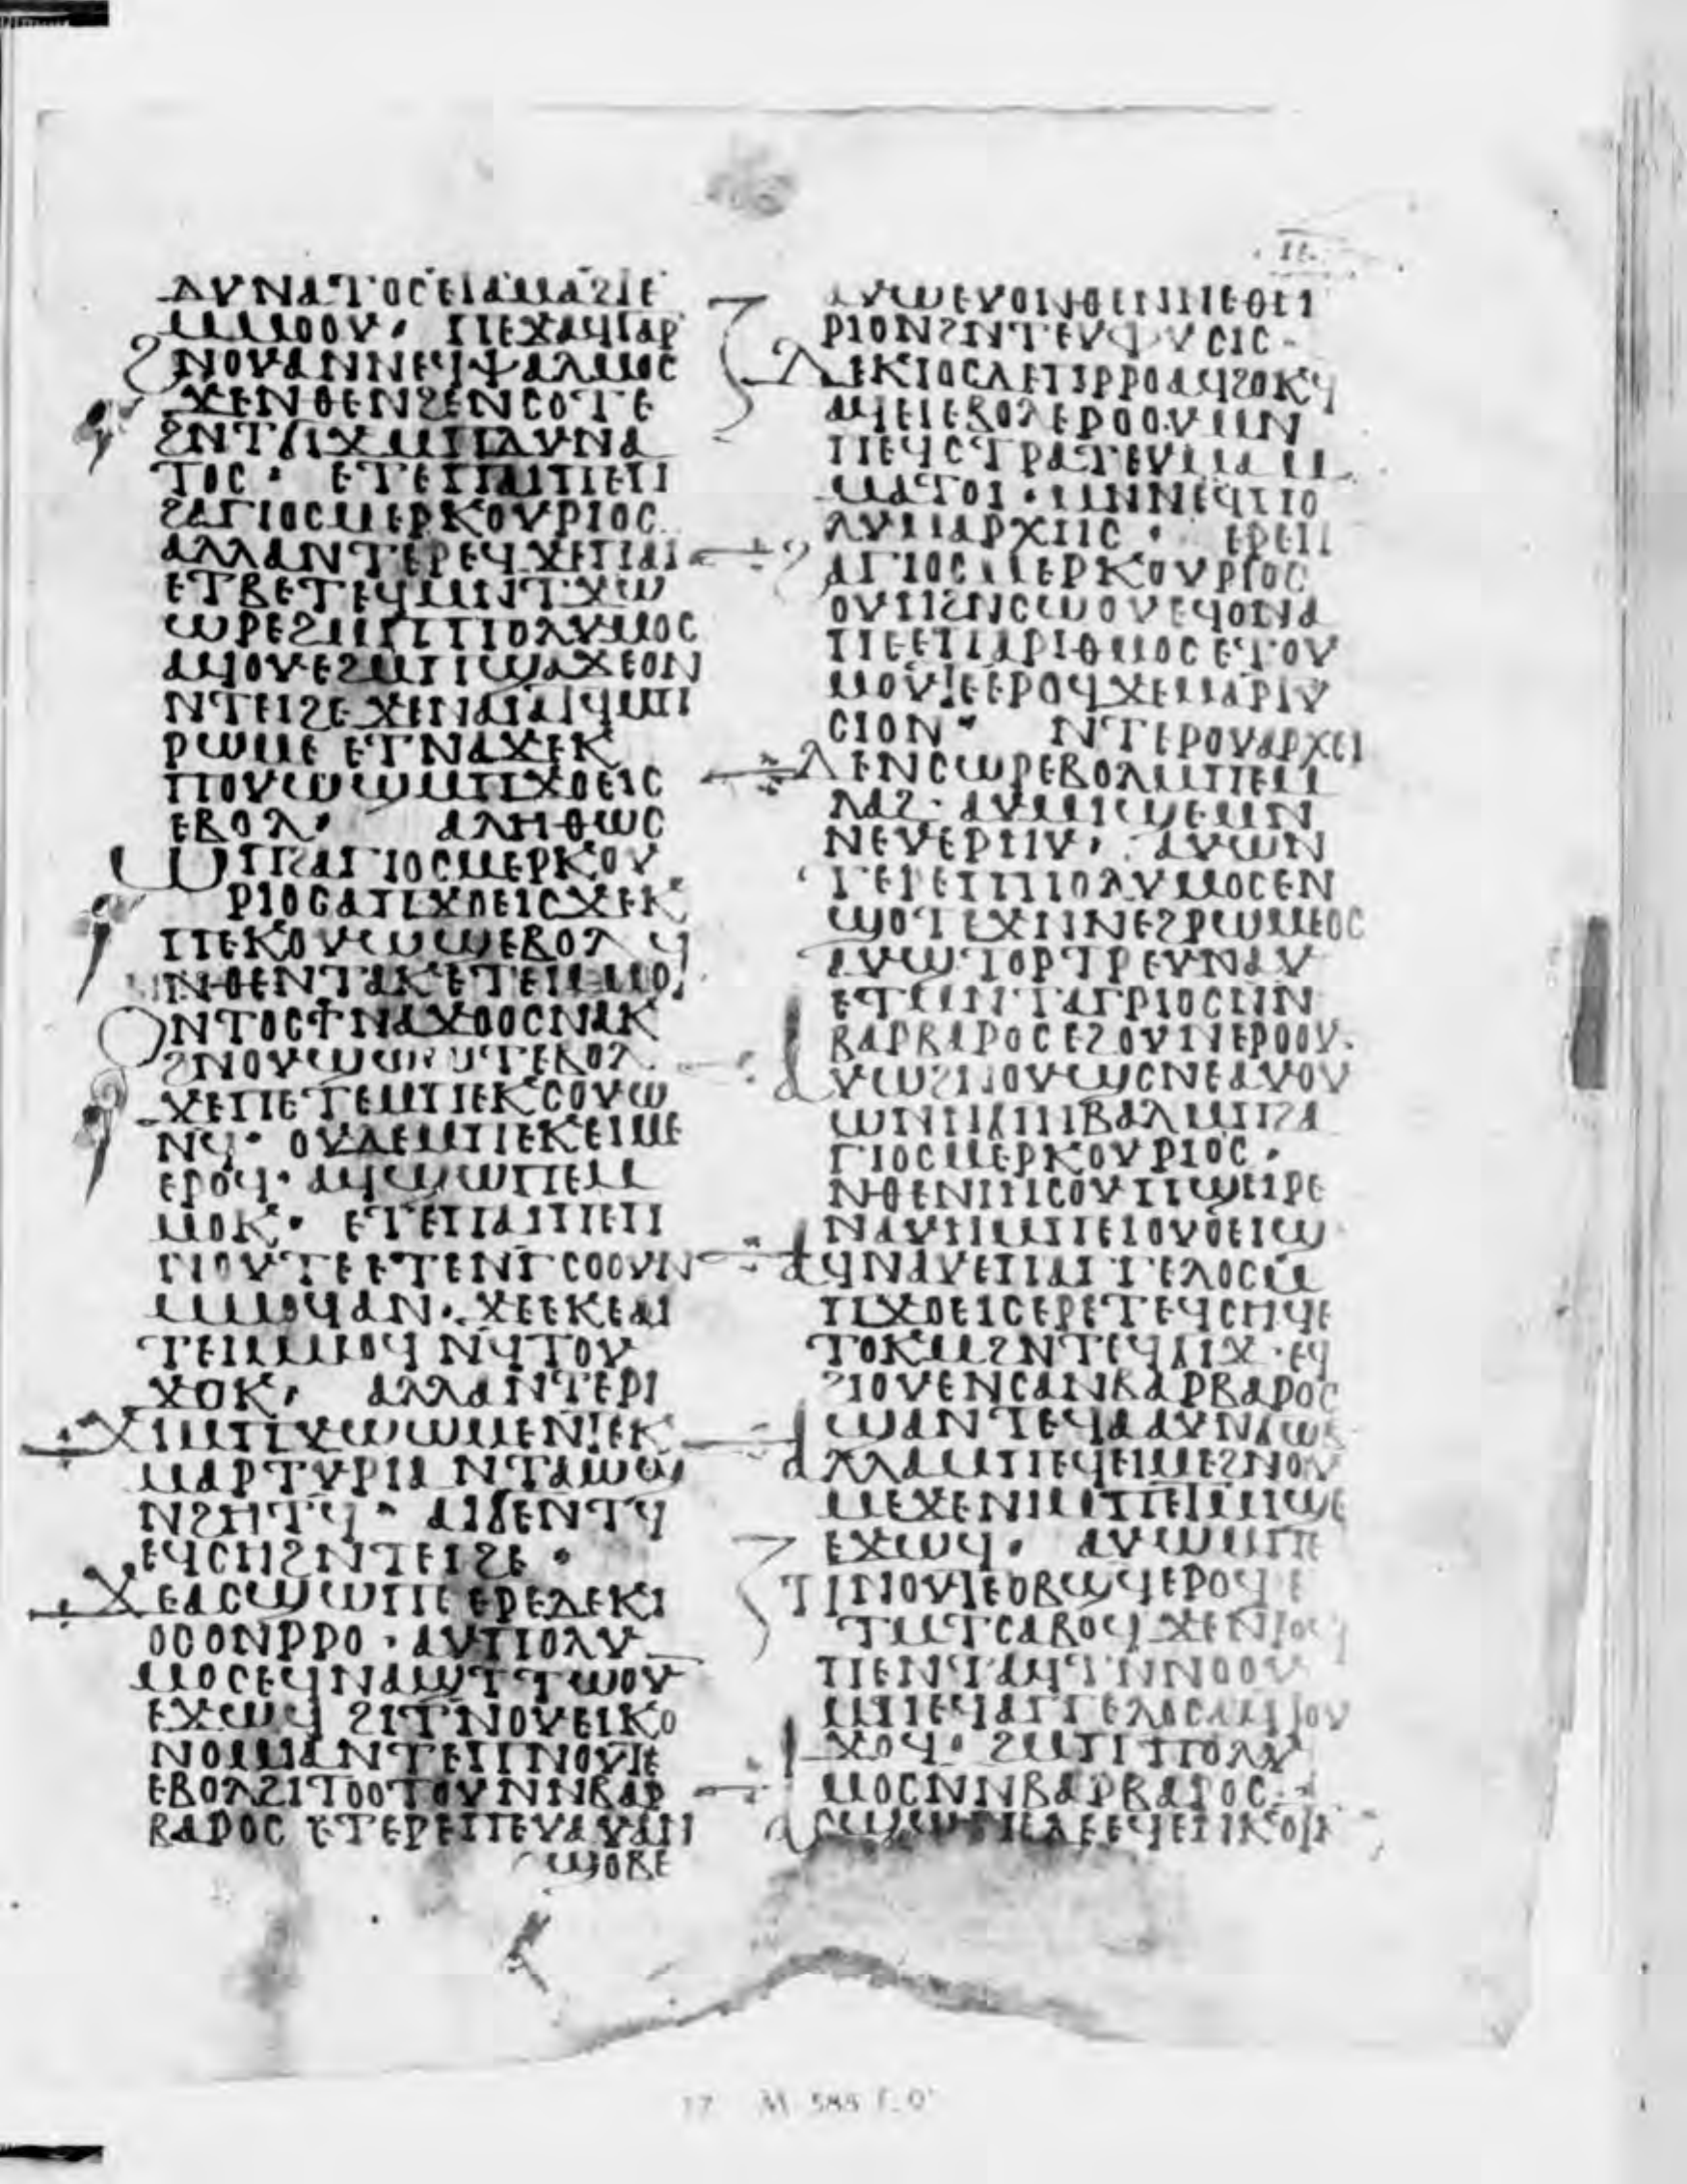 ⲇⲩⲛⲁⲧⲟⲥⲉⲓⲁⲙⲁϩⲧⲉ
ⲙⲙⲟⲟⲩ· ⲡⲉϫⲁϥⲅⲁⲣ
ϩⲛⲟⲩⲁⲛⲛⲉϥⲯⲁⲗⲙⲟⲥ
ϫⲉⲛⲑⲉⲛϩⲉⲛⲥⲟⲧⲉ
ϩⲛⲧϭⲓϫⲙⲡⲇⲩⲛⲁ
ⲧⲟⲥ· ⲉⲧⲉⲡⲁⲓⲡⲉⲡ
ϩⲁⲅⲓⲟⲥⲙⲉⲣⲕⲟⲩⲣⲓⲟⲥ
ⲁⲗⲗⲁⲛⲧⲉⲣⲉϥϫⲉⲡⲁⲓ
ⲉⲧⲃⲉⲧⲉϥⲙⲛⲧϫⲱ
ⲱⲣⲉϩⲙⲡⲡⲟⲗⲩⲙⲟⲥ
ⲁϥⲟⲩⲉϩⲙⲡϣⲁϫⲉⲟⲛ
ⲛⲧⲉⲓϩⲉϫⲉⲛⲁⲓⲁϥⲙⲡ
ⲣⲱⲙⲉ ⲉⲧⲛⲁϫⲉⲕ
ⲡⲟⲩⲱϣⲙⲡϫⲟⲉⲓⲥ
ⲉⲃⲟⲗ· ⲁⲗⲏⲑⲱⲥ
ⲱⲡϩⲁⲅⲓⲟⲥⲙⲉⲣⲕⲟⲩ
ⲣⲓⲟⲥⲁⲡϫⲟⲉⲓⲥϫⲉⲕ
ⲡⲉⲕⲟⲩⲱϣⲉⲃⲟⲗ
ⲛⲑⲉⲛⲧⲁⲕⲉⲧⲉⲓⲙⲙⲟϥ
ⲟⲛⲧⲟⲥϯⲛⲁϫⲟⲟⲥⲛⲁⲕ
ϩⲛⲟⲩⲱⲛϩ ⲉⲃⲟⲗ
ϫⲉⲡⲉⲧⲉⲙⲡⲉⲕⲥⲟⲩⲱ
ⲛϥ· ⲟⲩⲇⲉⲙⲡⲉⲕⲉⲓⲙⲉ
ⲉⲣⲟϥ· ⲁϥϣⲱⲡⲉⲙ
ⲙⲟⲕ· ⲉⲧⲉⲡⲁⲓⲡⲉⲡ
ⲛⲟⲩⲧⲉⲉⲧⲉⲛⲅⲥⲟⲟⲩⲛ
ⲙⲙⲟϥⲁⲛ· ϫⲉⲉⲕⲉⲁⲓ
ⲧⲉⲓⲙⲙⲟϥ ⲛϥⲧⲟⲩ
ϫⲟⲕ· ⲁⲗⲗⲁⲛⲧⲉⲣⲓ
ϫⲓⲙⲡϫⲱⲱⲙⲉⲛⲧⲉⲕ
ⲙⲁⲣⲧⲩⲣⲓⲁ ⲛⲧⲁⲱϣ
ⲛϩⲏⲧϥ· ⲁⲓϭⲉⲛⲧϥ
ⲉϥⲥⲏϩⲛⲧⲉⲓϩⲉ·
ϫⲉⲁⲥϣⲱⲡⲉ ⲉⲣⲉⲇⲉⲕⲓ
ⲟⲥⲟⲛⲣⲣⲟ· ⲁⲩⲡⲟⲗⲩ
ⲙⲟⲥⲉϥⲛⲁϣⲧⲧⲱⲟⲩ
ⲉϫⲱϥ ϩⲓⲧⲛⲟⲩⲉⲓⲕⲟ
ⲛⲟⲙⲓⲁⲛⲧⲉⲡⲛⲟⲩⲧⲉ
ⲉⲃⲟⲗϩⲓⲧⲟⲟⲧⲟⲩⲛⲛⲃⲁⲣ
ⲃⲁⲣⲟⲥ ⲉⲧⲉⲣⲉⲡⲉⲩⲁⲩⲁⲛ
ϣⲟⲃⲉ
ⲁⲩⲱⲉⲩⲟⲛⲑⲉⲛⲛⲉⲑⲏ
ⲣⲓⲟⲛϩⲛⲧⲉⲩⲫⲩⲥⲓⲥ
ⲇⲉⲕⲓⲟⲥⲇⲉⲡⲣⲣⲟⲁϥϩⲟⲕϥ
ⲁϥⲉⲓⲉⲃⲟⲗⲉⲣⲟⲟⲩⲙⲛ
ⲡⲉϥⲥⲧⲣⲁⲧⲉⲩⲙⲁ ⲙ
ⲙⲁⲧⲟⲓ· ⲙⲛⲛⲉϥⲡⲟ
ⲗⲩⲙⲁⲣⲭⲏⲥ· ⲉⲣⲉⲡ
ϩⲁⲅⲓⲟⲥⲙⲉⲣⲕⲟⲩⲣⲓⲟⲥ
ⲟⲩⲏϩⲛⲥⲱⲟⲩⲉϥⲟⲛϩⲁ
ⲡⲉⲉⲡⲁⲣⲓⲑⲙⲟⲥⲉⲧⲟⲩ
ⲙⲟⲩⲧⲉⲉⲣⲟϥϫⲉⲙⲁⲣⲧⲩ
ⲥⲓⲟⲛ· ⲛⲧⲉⲣⲟⲩⲁⲣⲭⲉⲓ
ⲇⲉⲛⲥⲱⲣⲉⲃⲟⲗⲙⲡⲉⲙ
ⲗⲁϩ· ⲁⲩⲙⲓϣⲉⲙⲛ
ⲛⲉⲩⲉⲣⲏⲩ· ⲁⲩⲱⲛ
ⲧⲉⲣⲉⲡⲡⲟⲗⲩⲙⲟⲥⲉⲛ
ϣⲟⲧⲉϫⲛⲛⲉϩⲣⲱⲙⲉⲟⲥ
ⲁⲩϣⲧⲟⲣⲧⲣⲉⲩⲛⲁⲩ
ⲉⲧⲙⲛⲧⲁⲅⲣⲓⲟⲥⲛⲛ
ⲃⲁⲣⲃⲁⲣⲟⲥⲉϩⲟⲩⲛⲉⲣⲟⲟⲩ·
ⲁⲩⲱϩⲛⲟⲩϣⲥⲛⲉⲁⲩⲟⲩ
ⲱⲛⲛϭⲓⲛⲃⲁⲗⲙⲡϩⲁ
ⲅⲓⲟⲥⲙⲉⲣⲕⲟⲩⲣⲓⲟⲥ·
ⲛⲑⲉⲛⲓⲏⲥⲟⲩⲡϣⲏⲣⲉ
ⲛⲁⲩⲏⲙⲡⲉⲓⲟⲩⲟⲉⲓϣ
ⲁϥⲛⲁⲩⲉⲡⲁⲅⲅⲉⲗⲟⲥⲙ
ⲡϫⲟⲉⲓⲥⲉⲣⲉⲧⲉϥⲥⲏϥⲉ
ⲧⲟⲕⲙϩⲛⲧⲉϥϭⲓϫ·ⲉϥ
ϩⲓⲟⲩⲉⲛⲥⲁⲛⲃⲁⲣⲃⲁⲣⲟⲥ
ϣⲁⲛⲧⲉϥⲁⲁⲩⲛϭⲱⲃ
ⲁⲗⲗⲁⲙⲡⲉϥⲉⲓⲙⲉϩⲛⲟⲩ
ⲙⲉϫⲉⲛⲓⲙⲡⲉⲧⲙⲓϣⲉ
ⲉϫⲱϥ· ⲁⲩⲱⲙⲡⲉ
ⲡⲛⲟⲩⲧⲉⲟⲃϣϥⲉⲣⲟϥ ⲉ
ⲧⲙⲧⲥⲁⲃⲟϥ ϫⲉⲛⲧⲟϥ
ⲡⲉⲛⲧⲁϥⲧⲛⲛⲟⲟⲩ
ⲙⲡⲉϥⲁⲅⲅⲉⲗⲟⲥⲁϥⲧⲟⲩ
ϫⲟϥ· ϩⲙⲡⲡⲟⲗⲩ
ⲙⲟⲥⲛⲛⲃⲁⲣⲃⲁⲣⲟⲥ·
ⲁⲥϣⲱⲡⲉⲇⲉⲉϥⲉⲛⲕⲟⲧⲕ